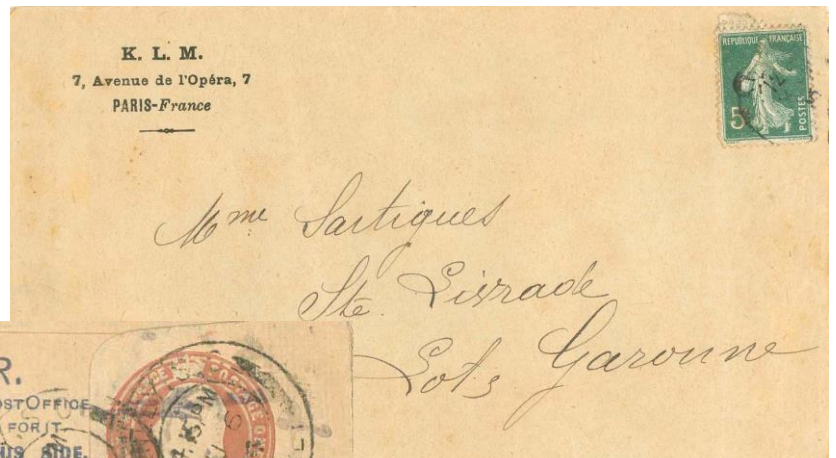 K. L. M.
7, Avenue de l'Opéra, 7
PARIS-France
REPUBLIQUE FRANÇAISE
5
POSTES
Mme Sartigues
Ste Livrade
Lot & Garonne
R.
POST OFFICE
FOR IT
THIS SIDE.
POSTAGE